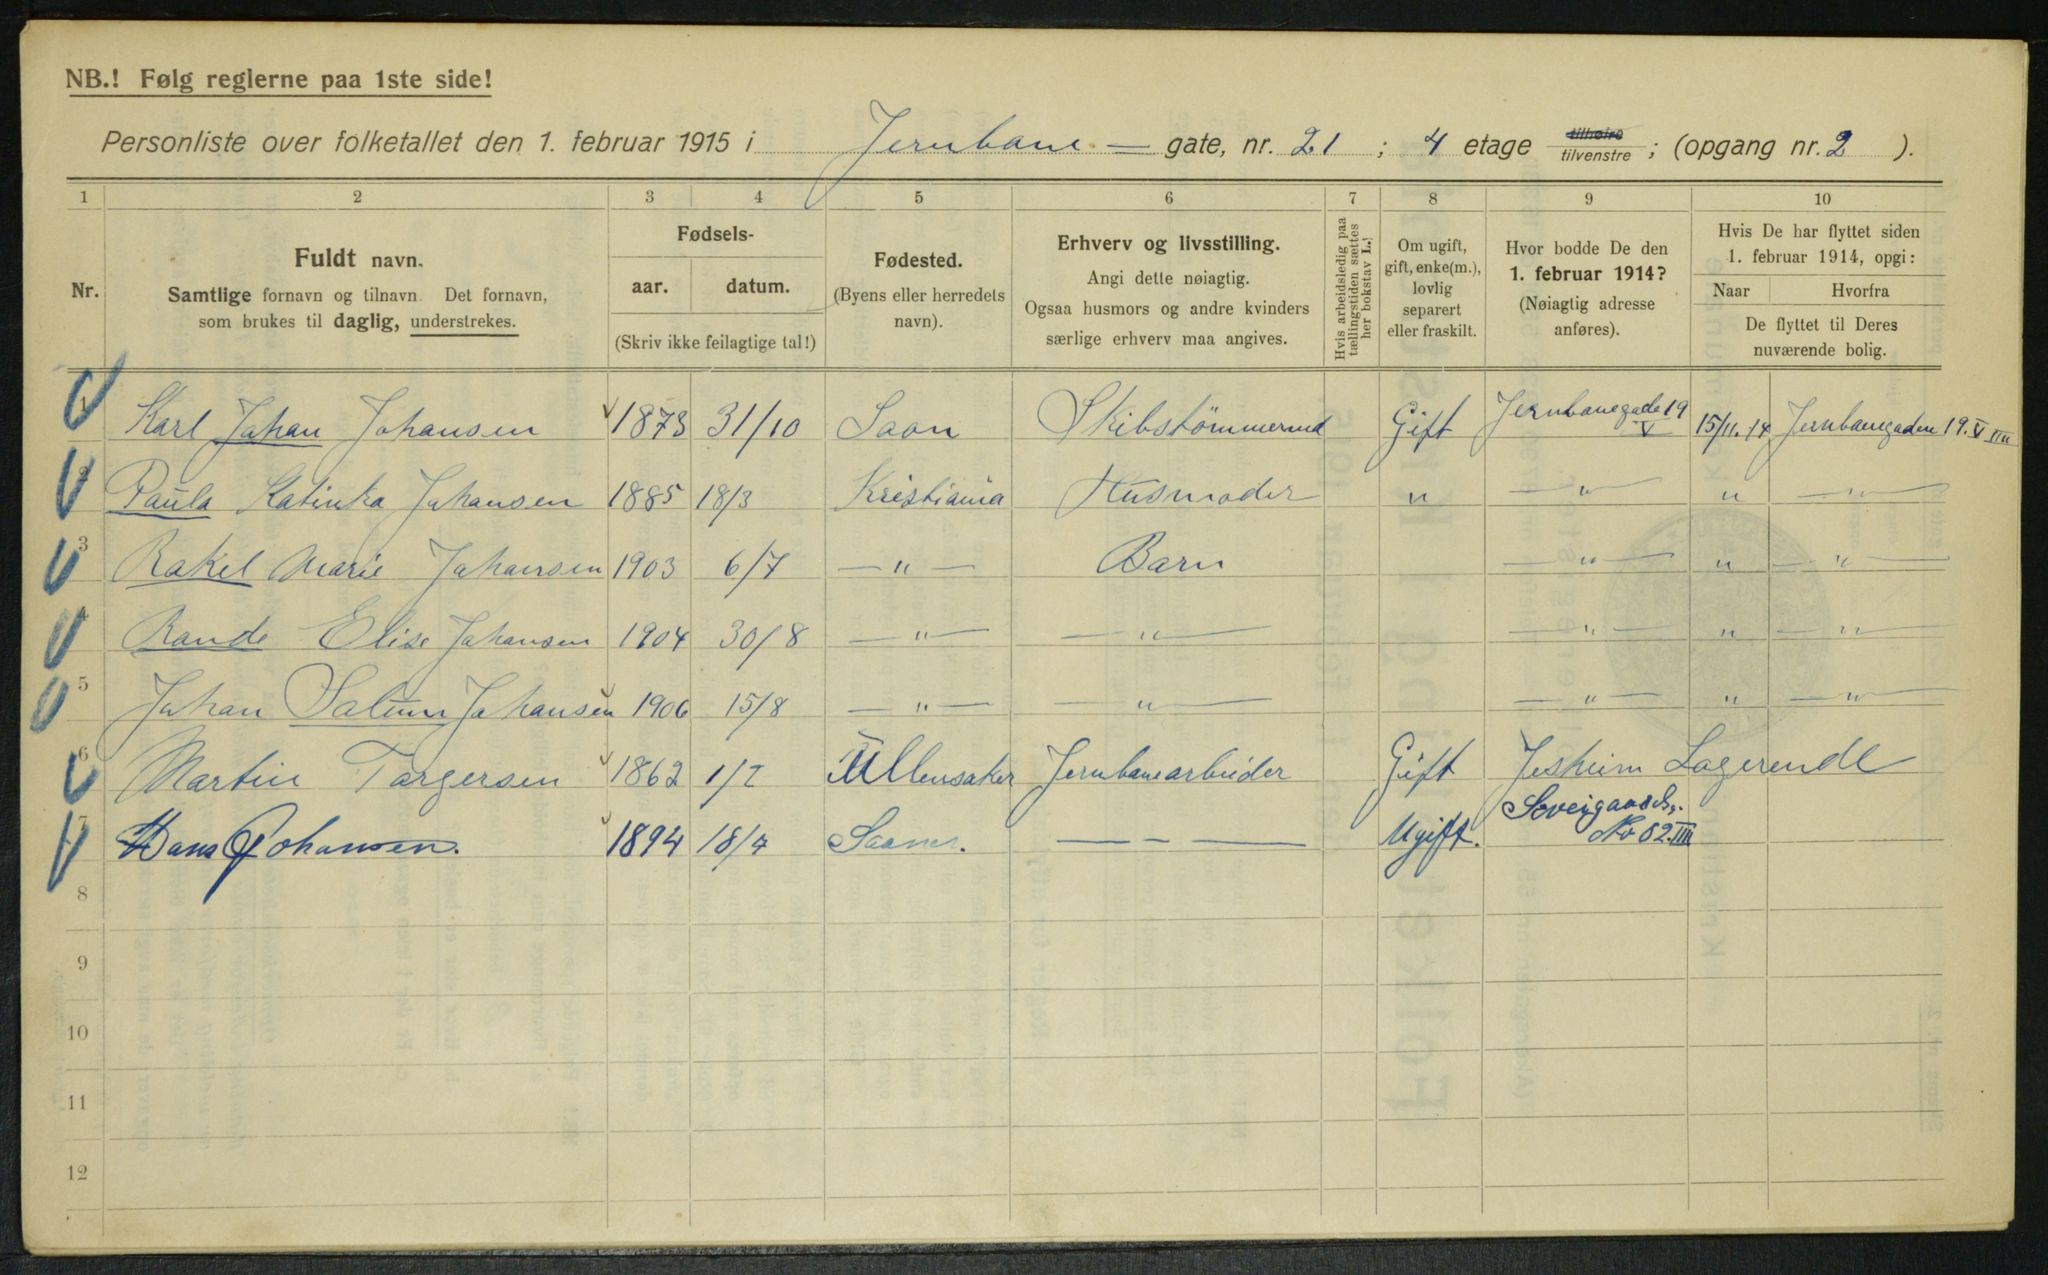 NB.! Følg reglerne paa 1ste side!
Personliste over folketallet den 1. februar 1915 i Jernbane — gate, nr. 21 ; 4 etage tilhøire tilvenstre ; (opgang nr. 2 ).
1 2 3 4 5 6 7 8 9 10
Nr.
Fuldt navn.
Samtlige fornavn og tilnavn. Det fornavn,
som brukes til daglig, understrekes.
Fødsels-
aar. datum.
(Skriv ikke feilagtige tal!)
Fødested.
(Byens eller herredets
navn).
Erhverv og livsstilling.
Angi dette nøiagtig.
Ogsaa husmors og andre kvinders
særlige erhverv maa angives.
Hvis arbeidsledig paa
tællingstiden sættes
her bokstav L.!
Om ugift,
gift, enke(m.),
lovlig
separert
eller fraskilt.
Hvor bodde De den
1. februar 1914?
(Nøiagtig adresse
anføres).
Hvis De har flyttet siden
1. februar 1914, opgi:
Naar Hvorfra
De flyttet til Deres
nuværende bolig.
1 Karl Johan Johansen 1873 31/10 Saon Skibstömmermd Gift Jernbanegade 19 V 15/11.14 Jernbanegaden 19. V
2 Paula Katinka Johansen 1885 18/3 Kristiania Husmoder " — " — " — " —
3 Rakel Marie Johansen 1903 6/7 — " — Barn — " — " — " —
4 Rande Elise Johansen 1904 30/8 — " — — " — — " — " — " —
5 Johan Johansen 1906 15/8 — " — — " — — " — " — " —
6 Martin Torgersen 1862 1/2 Ullensaker Jernbanearbeider Gift Jesheim
7 Hans Johansen. 1894 18/4 — — — Ugift. No 62. III
8
9
10
11
12